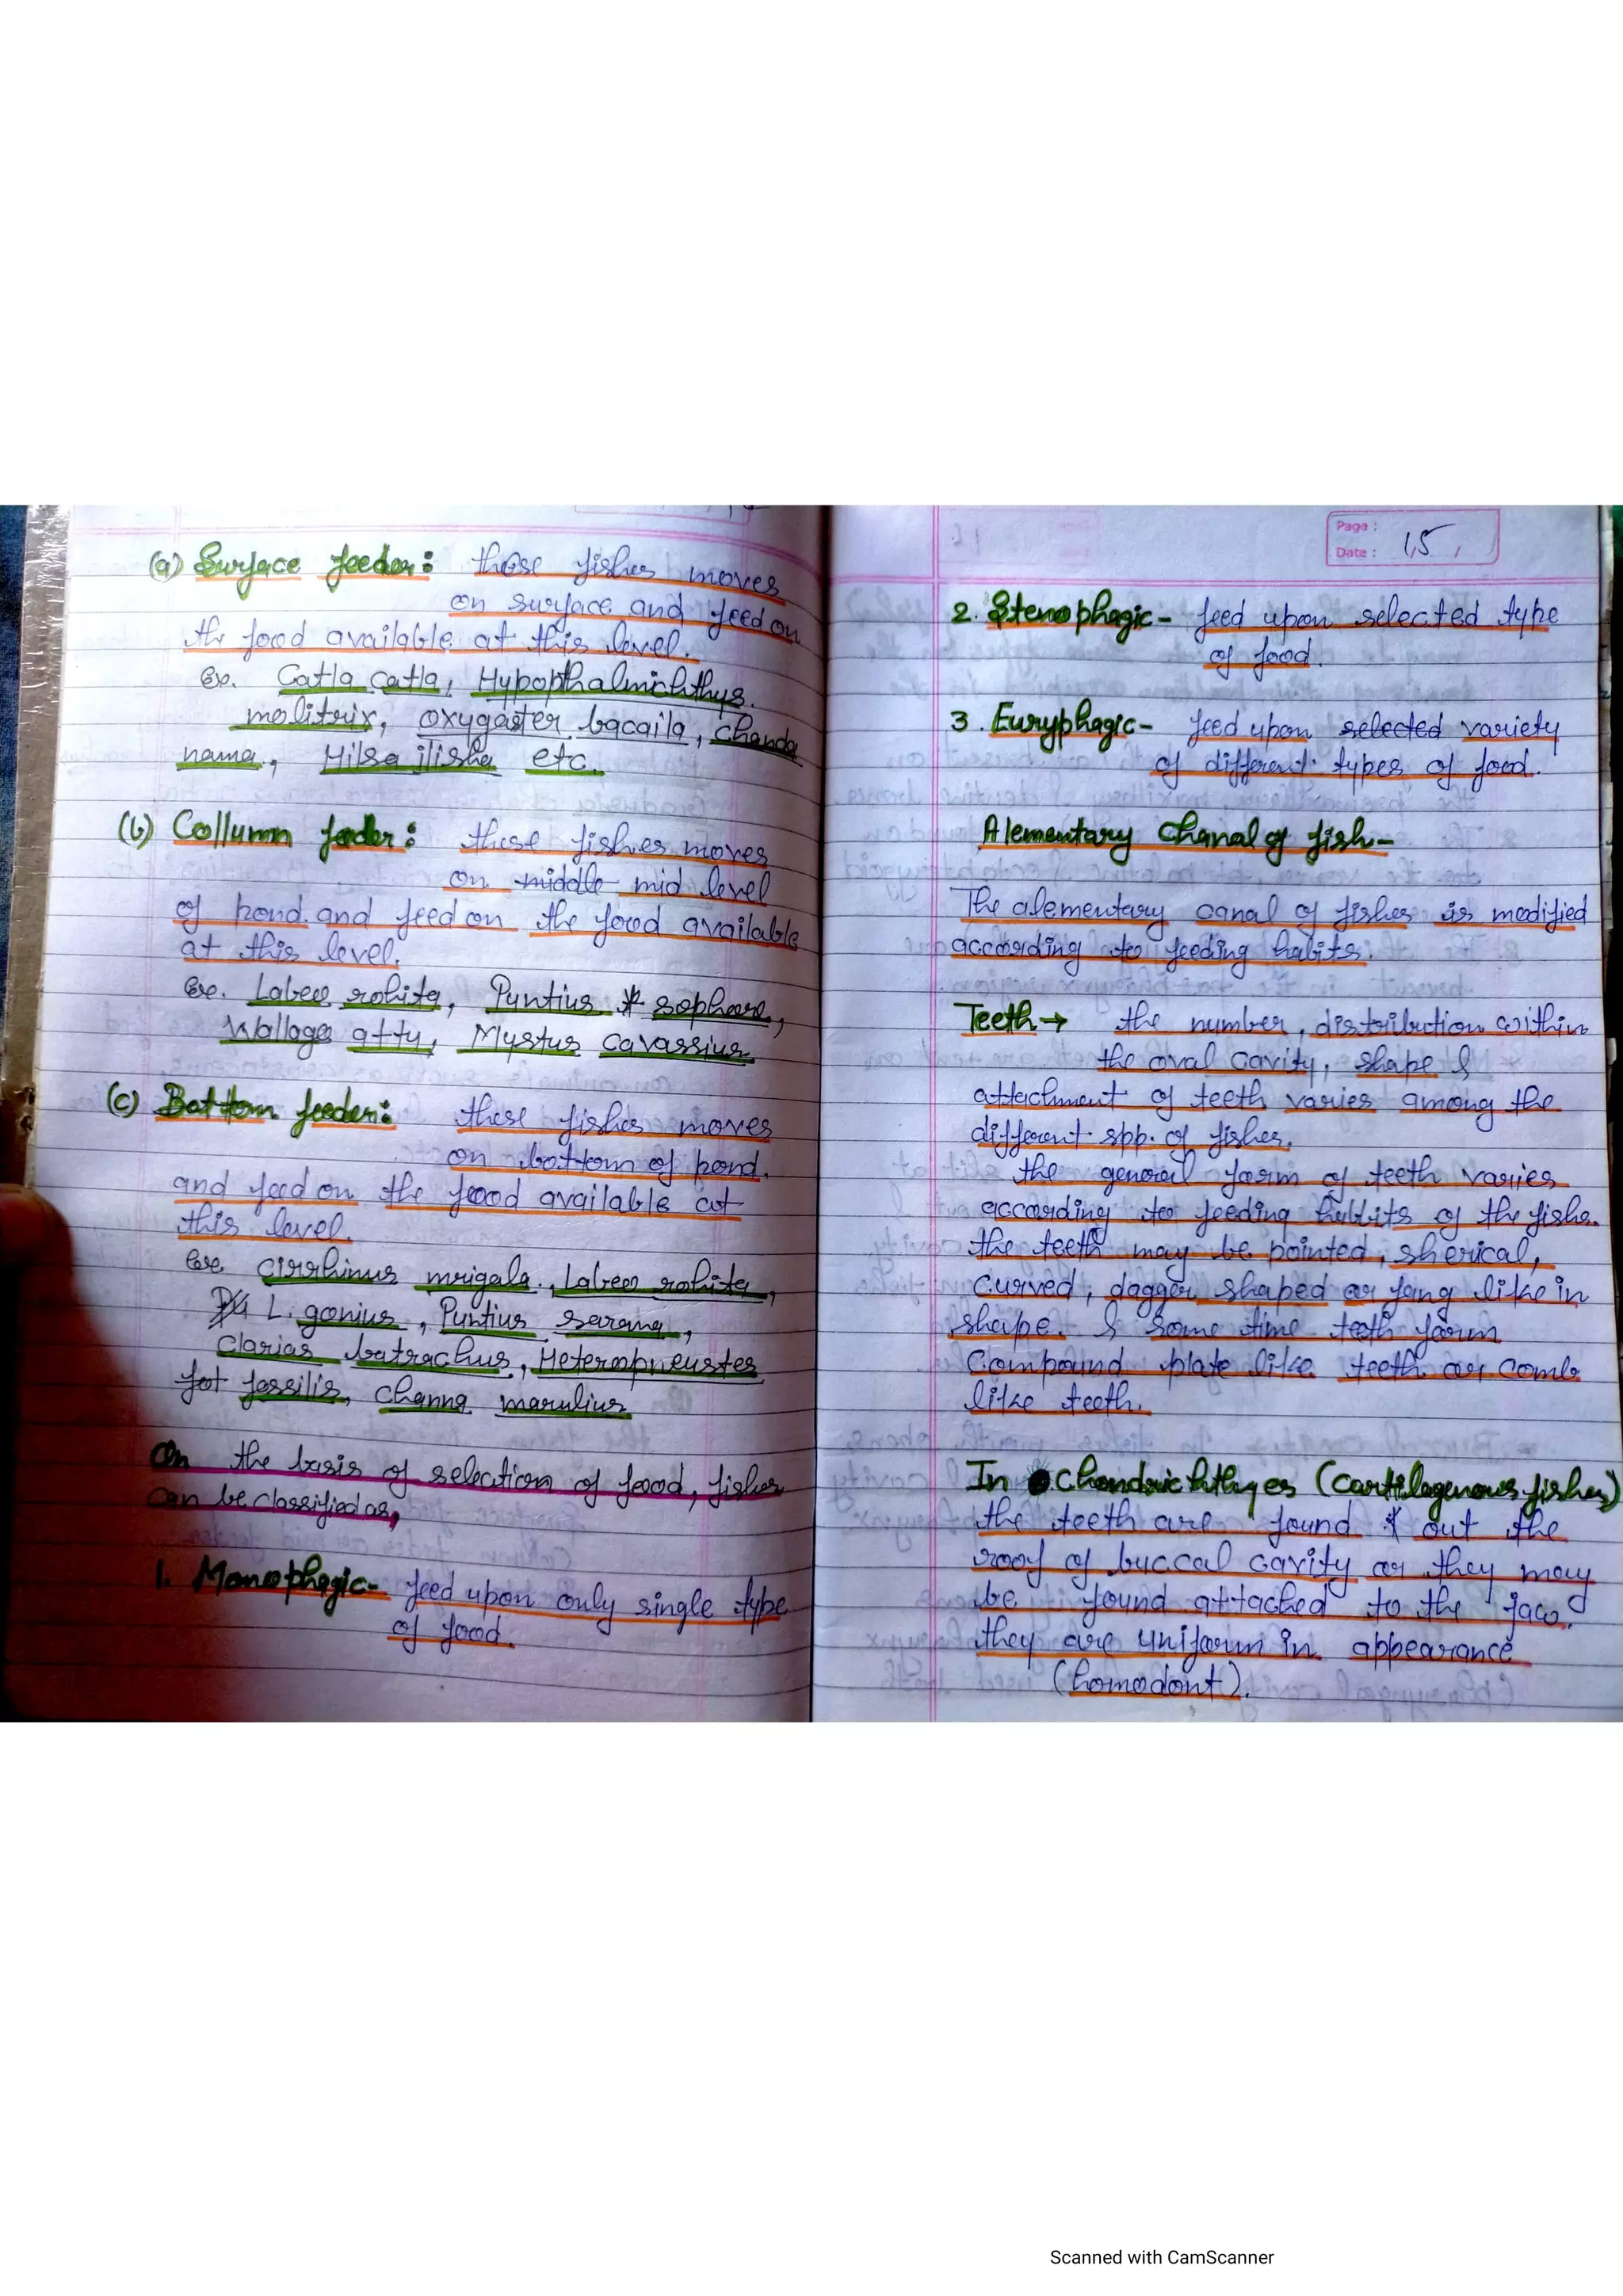 (a) Surface feeder: these fishes moves
on surface and feed on
the food available at this level.
Ex. Catla catla, Hypopthalmichthys
molitrix, oxygaster bacaila, chanda
nama, Hilsa ilisha etc.
(b) Collumn feeder: these fishes moves
on middle mid level
of pond. and feed on the food available
at this level.
Ex. Labeo rohita, Puntius sophore,
Wallago atty, Mystus cavassius
(c) Bottom feeder: these fishes moves
on bottom of pond.
and feed on the food available at
this level.
Ex. Cirrhinus mrigala, Labeo rohita,
L. gonius, Puntius sarana,
Clarias batrachus, Heteropneustes
fot fossilis, channa marulius
On the basis of selection of food, fishes
can be classified as,
1. Monophagic- feed upon only single type
of food.
Page :
Date : 15
2. Stenophagic- feed upon selected type
of food.
3. Euryphagic- feed upon selected variety
of different types of food.
Alementary Chanal of fish-
The alementary canal of fishes is modified
according to feeding habits.
Teeth→ the number, distribution within
the oval cavity, shape &
attachment of teeth varies among the
different spp. of fishes.
the general form of teeth varies
according to feeding habits of the fishe.
the teeth may be pointed, sherical,
curved, dagger shaped or fang like in
shape. & some time teeth form
Compound plate like teeth or comb
like teeth.
In Chondrichthyes (Cartilagenous fishes)
the teeth are found out the
roof of buccal cavity or they may
be found attached to the jaw
they are uniform in appearance
(homodont).
Scanned with CamScanner